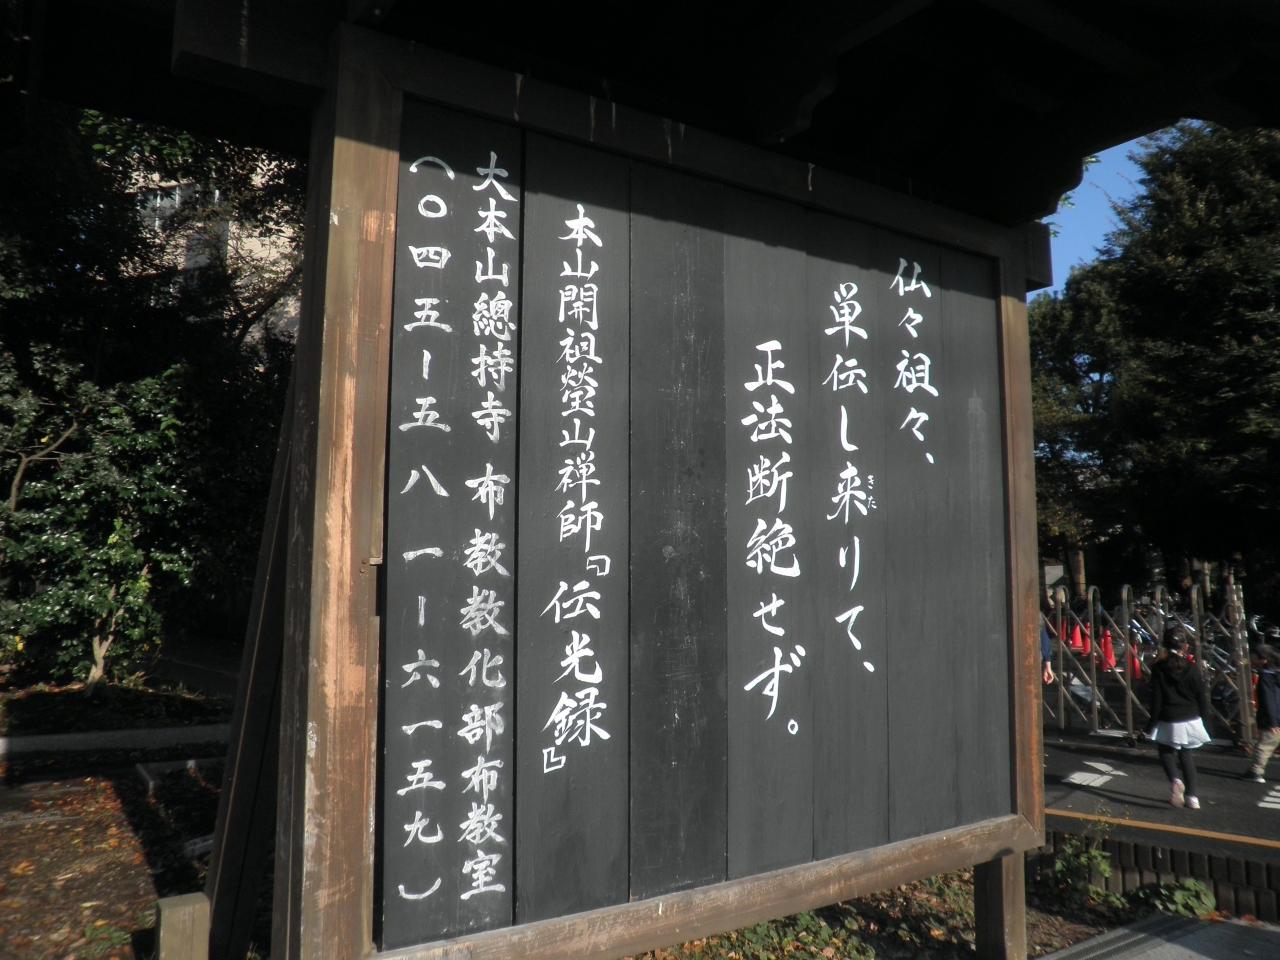 仏々祖々、
単伝し来りて、
きた
正法断絶せず。
本山開祖瑩山禅師『伝光録』
大本山總持寺 布教教化部布教室
（〇四五ー五八一ー六一五九）